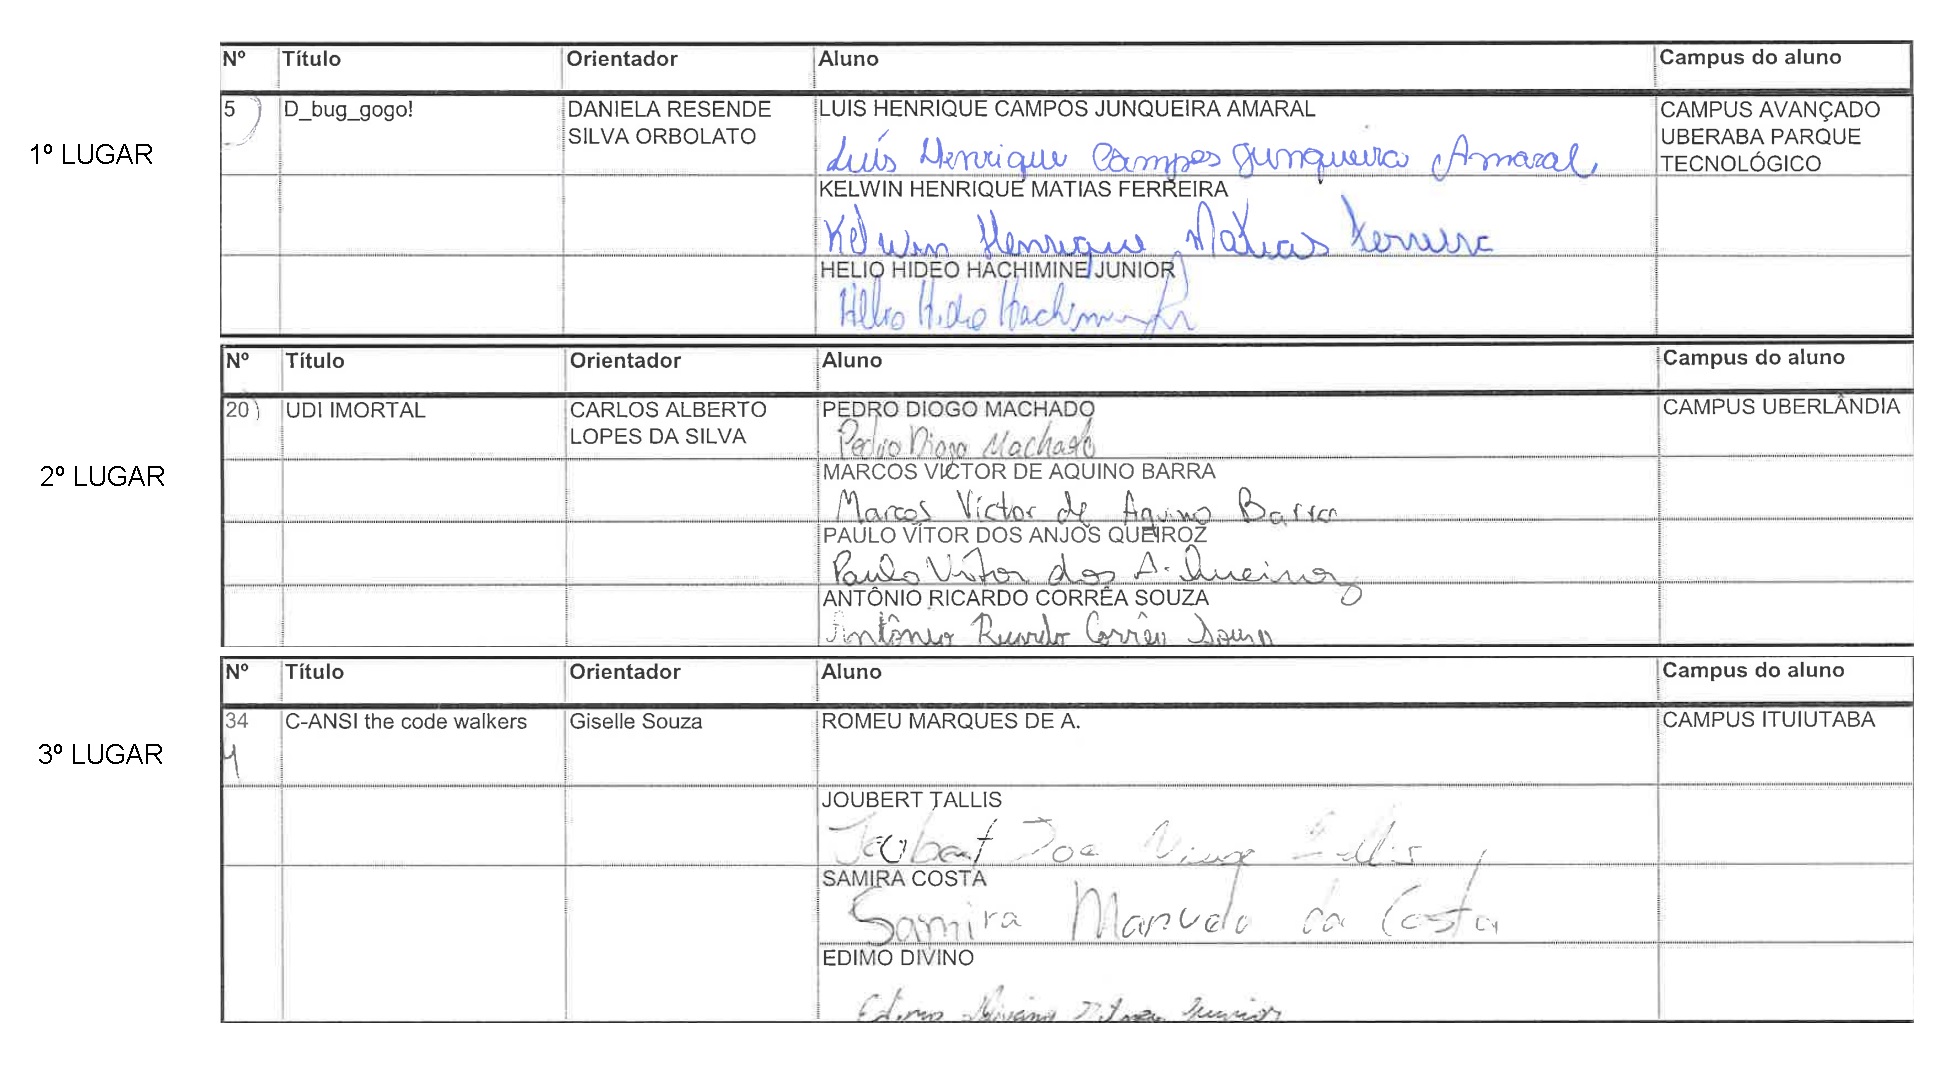 Nº Título Orientador Aluno Campus do aluno
5 D_bug_gogo! DANIELA RESENDE LUIS HENRIQUE CAMPOS JUNQUEIRA AMARAL CAMPUS AVANÇADO
SILVA ORBOLATO UBERABA PARQUE
1º LUGAR Luís Henrique Campos Junqueira Amaral TECNOLÓGICO
KELWIN HENRIQUE MATIAS FERREIRA
Kelwin Henrique Matias Ferreira
HELIO HIDEO HACHIMINE JUNIOR
Hélio Hideo Hachimine Jr
Nº Título Orientador Aluno Campus do aluno
20 UDI IMORTAL CARLOS ALBERTO PEDRO DIOGO MACHADO CAMPUS UBERLÂNDIA
LOPES DA SILVA Pedro Diogo Machado
2º LUGAR MARCOS VICTOR DE AQUINO BARRA
Marcos Victor de Aquino Barra
PAULO VÍTOR DOS ANJOS QUEIROZ
Paulo Vítor dos A. Queiroz
ANTÔNIO RICARDO CORRÊA SOUZA
Antônio Ricardo Corrêa Souza
Nº Título Orientador Aluno Campus do aluno
34 C-ANSI the code walkers Giselle Souza ROMEU MARQUES DE A. CAMPUS ITUIUTABA
3º LUGAR 4
JOUBERT TALLIS
Joubert
SAMIRA COSTA
Samira da Costa
EDIMO DIVINO
Edimo Divino Junior